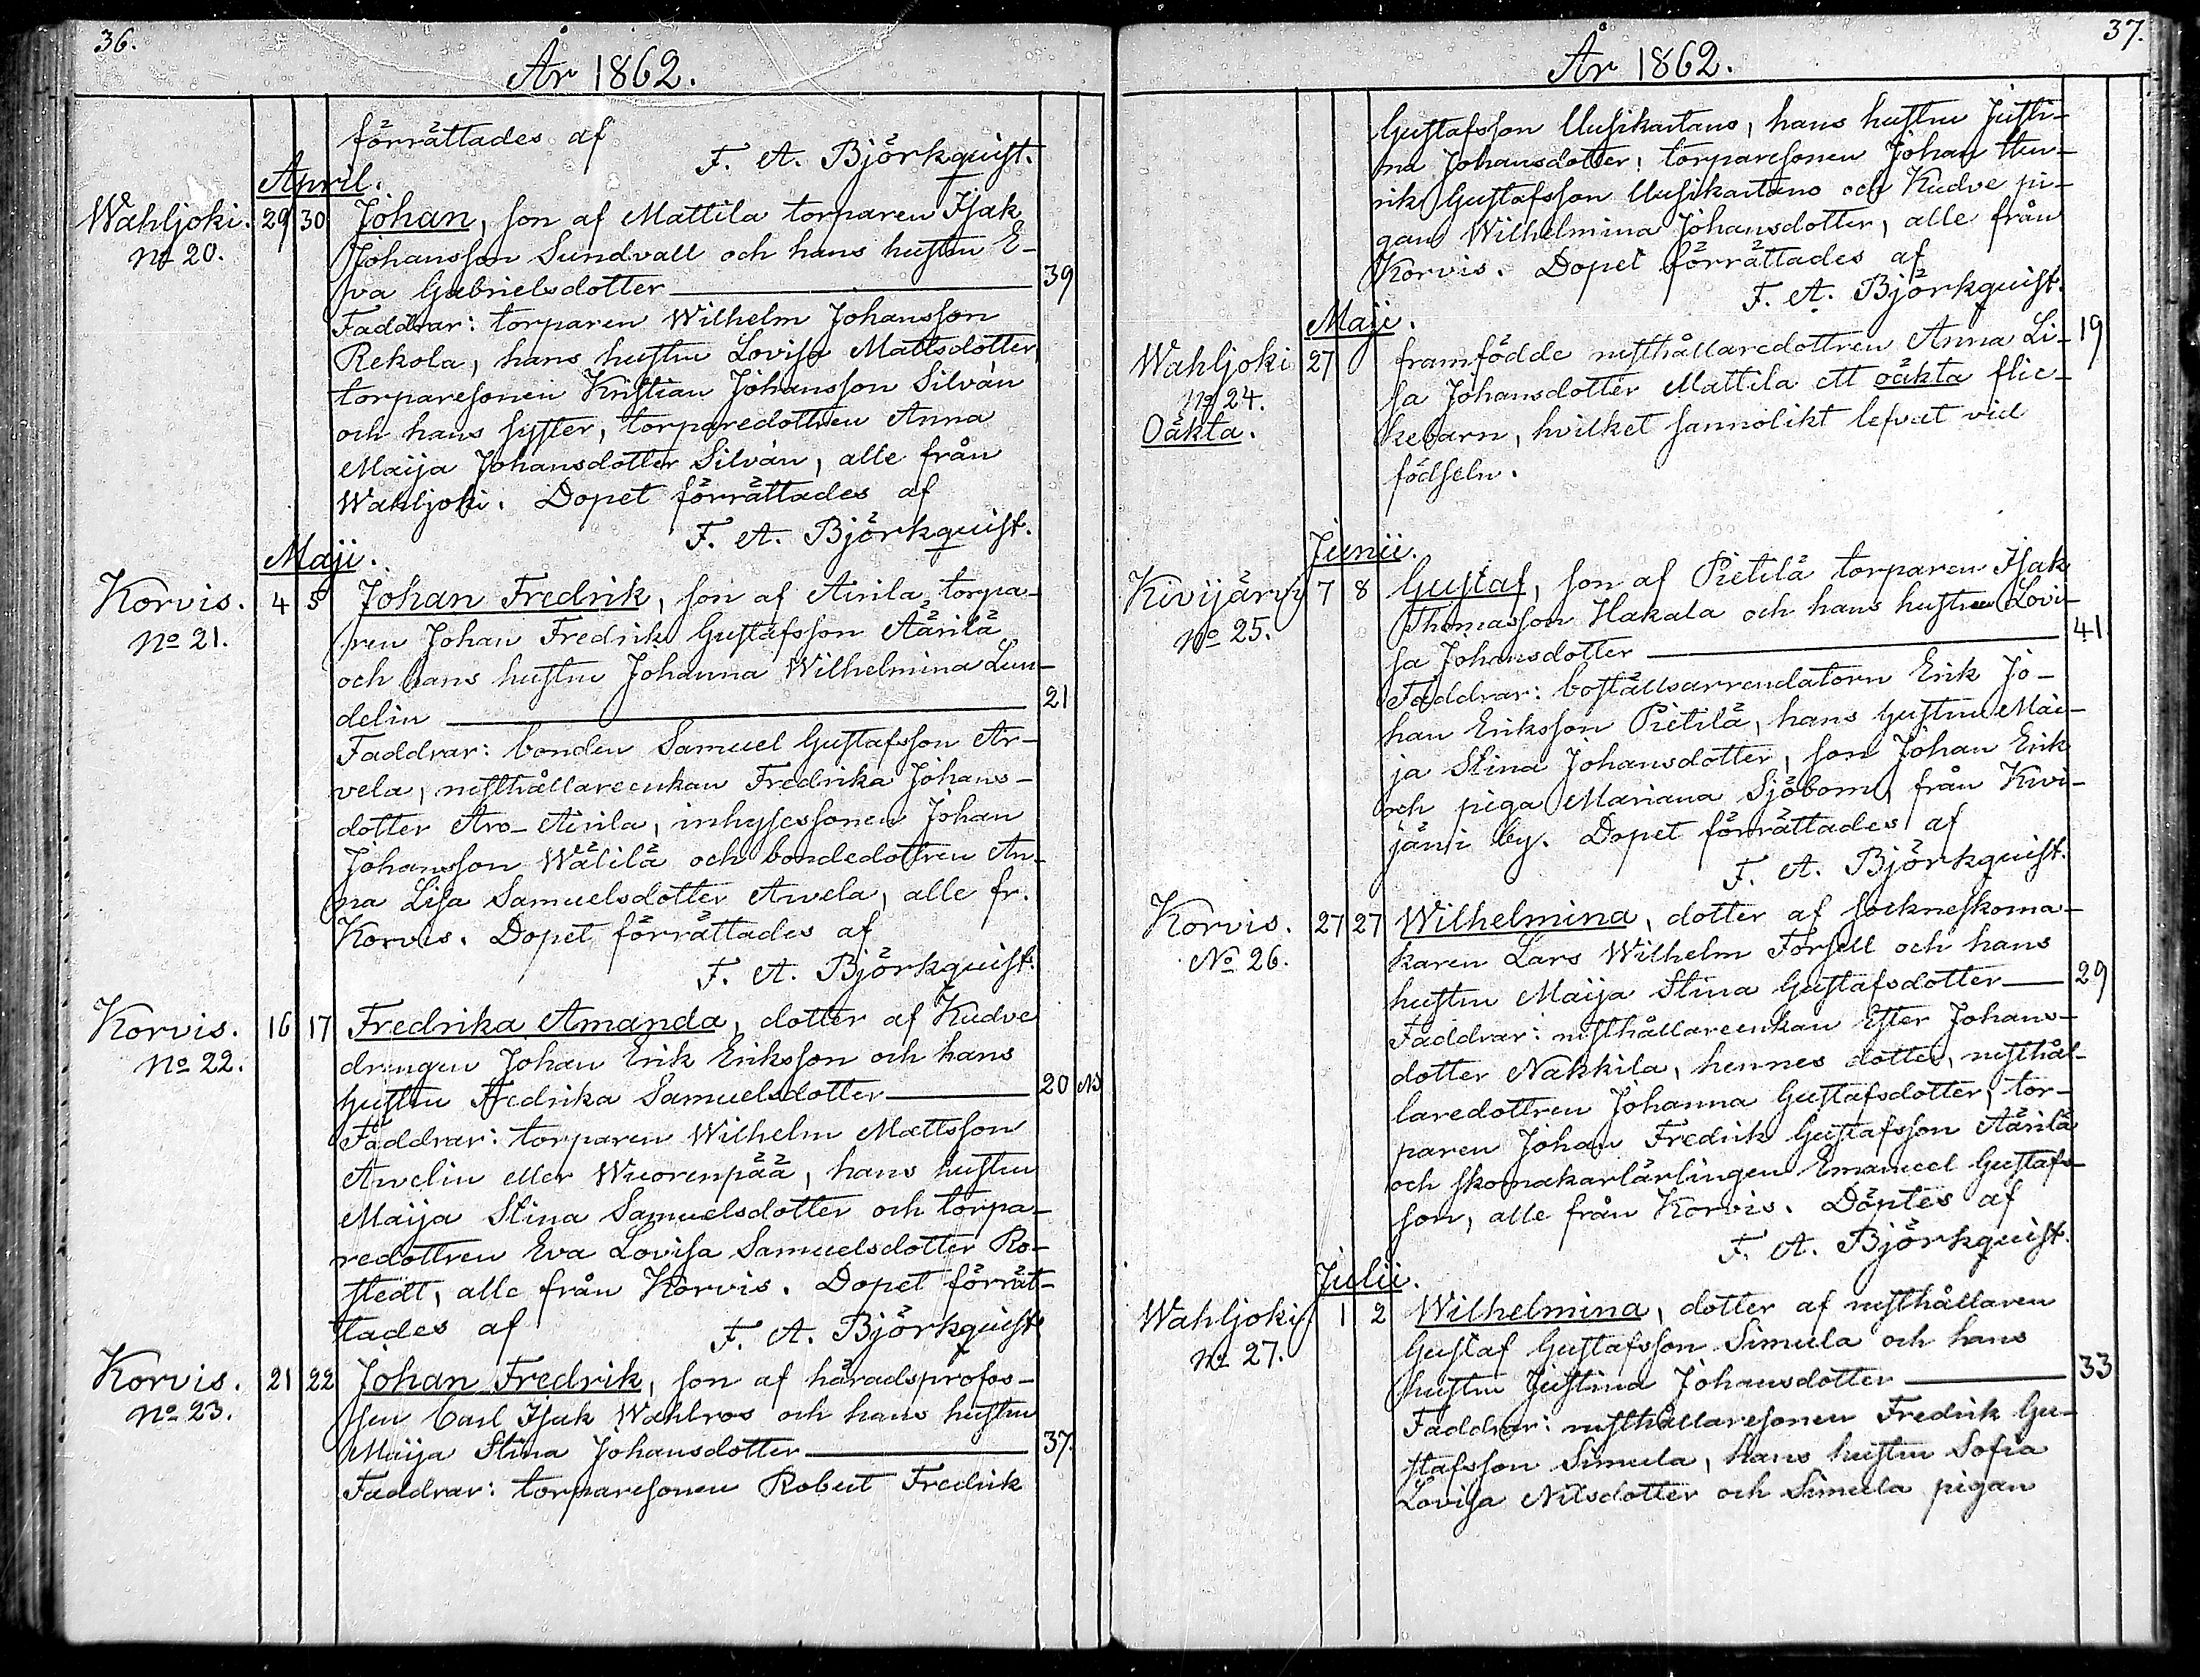 36.
År 1862.
förrättades af
F. A. Björkquist.
April.
Wahljoki. 29 30 Johan, son af Mattila torparen Isak
No 20. Johansson Sundvall och hans hustru E-
va Gabrielsdotter 39
Faddrar: torparen Wilhelm Johansson
Rekola, hans hustru Lovisa Mattsdotter,
torparesonen Kristian Johansson Silvàn
och hans syster, torparedottren Anna
Maija Johansdotter Silvàn, alle från
Wahljoki. Dopet förrättades af
F. A. Björkquist.
Maji.
Korvis. 4 5 Johan Fredrik, son af Airila torpa-
No 21. ren Johan Fredrik Gustafsson Äärilä
och hans hustru Johanna Wilhelmina Lun-
delin 21
Faddrar: bonden Samuel Gustafsson Ar-
vela, rusthållareenkan Fredrika Johans-
dotter Aro-Airila, inhysessonen Johan
Johansson Wälilä och bondedottren An-
na Lisa Samuelsdotter Arvela, alle fr.
Korvis. Dopet förrättades af
F. A. Björkquist.
Korvis. 16 17 Fredrika Amanda, dotter af Kudve
No 22. drengen Johan Erik Eriksson och hans
hustru Fredrika Samuelsdotter 20 NB
Faddrar: torparen Wilhelm Mattsson
Arvelin eller Wuorenpää, hans hustru
Maija Stina Samuelsdotter och torpa-
redottren Eva Lovisa Samuelsdotter Ro-
stedt, alle från Korvis. Dopet förrät-
tades af F. A. Björkquist
Korvis. 21 22 Johan Fredrik, son af häradsprofos-
No 23. sen Carl Isak Wahlros och hans hustru
Maija Stina Johansdotter 37.
Faddrar: torparesonen Robert Fredrik
37.
År 1862.
Gustafsson Uusikartano, hans hustru Justi-
na Johansdotter, torparesonen Johan Hen-
rik Gustafsson Uusikartano och Kudve pi-
gan Wilhelmina Johansdotter, alle från
Korvis. Dopet förrättades af
F. A. Björkquist.
Maji.
Wahljoki 27 framfödde rusthållaredottren Anna Li- 19
No 24. sa Johansdotter Mattila ett oäkta flic-
Oäkta. kebarn, hvilket sannolikt lefvat vid
födseln.
Junii.
Kivijärvi 7 8 Gustaf, son af Pietilä torparen Isak
No 25. Thomasson Hakala och hans hustru Lovi-
sa Johansdotter 41
Faddrar: boställsarrendatorn Erik Jo-
han Eriksson Pietilä, hans hustru Mai-
ja Stina Johansdotter, son Johan Erik
och piga Mariana Sjöbom, från Kivi-
järvi by. Dopet förrättades af
F. A. Björkquist.
Korvis. 27 27 Wilhelmina, dotter af sockneskoma-
No 26. karen Lars Wilhelm Forsell och hans
hustru Maija Stina Gustafsdotter 29
Faddrar: rusthållareenkan Ester Johans-
dotter Nakkila, hennes dotter, rusthål-
laredottren Johanna Gustafsdotter, tor-
paren Johan Fredrik Gustafsson Äärilä
och skomakarlärlingen Emanuel Gustafs-
son, alle från Korvis. Döptes af
F. A. Björkquist.
Julii.
Wahljoki 1 2 Wilhelmina, dotter af rusthållaren
No 27. Gustaf Gustafsson Simula och hans
hustru Justina Johansdotter 33
Faddrar: rusthållaresonen Fredrik Gu-
stafsson Simula, hans hustru Sofia
Lovisa Nilsdotter och Simula pigan